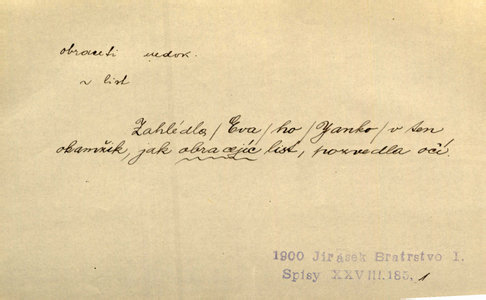 obraceti nedok.
~ list
Zahlédla /Eva/ ho /Janko/ v ten
okamžik, jak obracejíc list, pozvedla očí.
1900 Jirásek Bratrstvo I.
Spisy XXVIII.185. 1